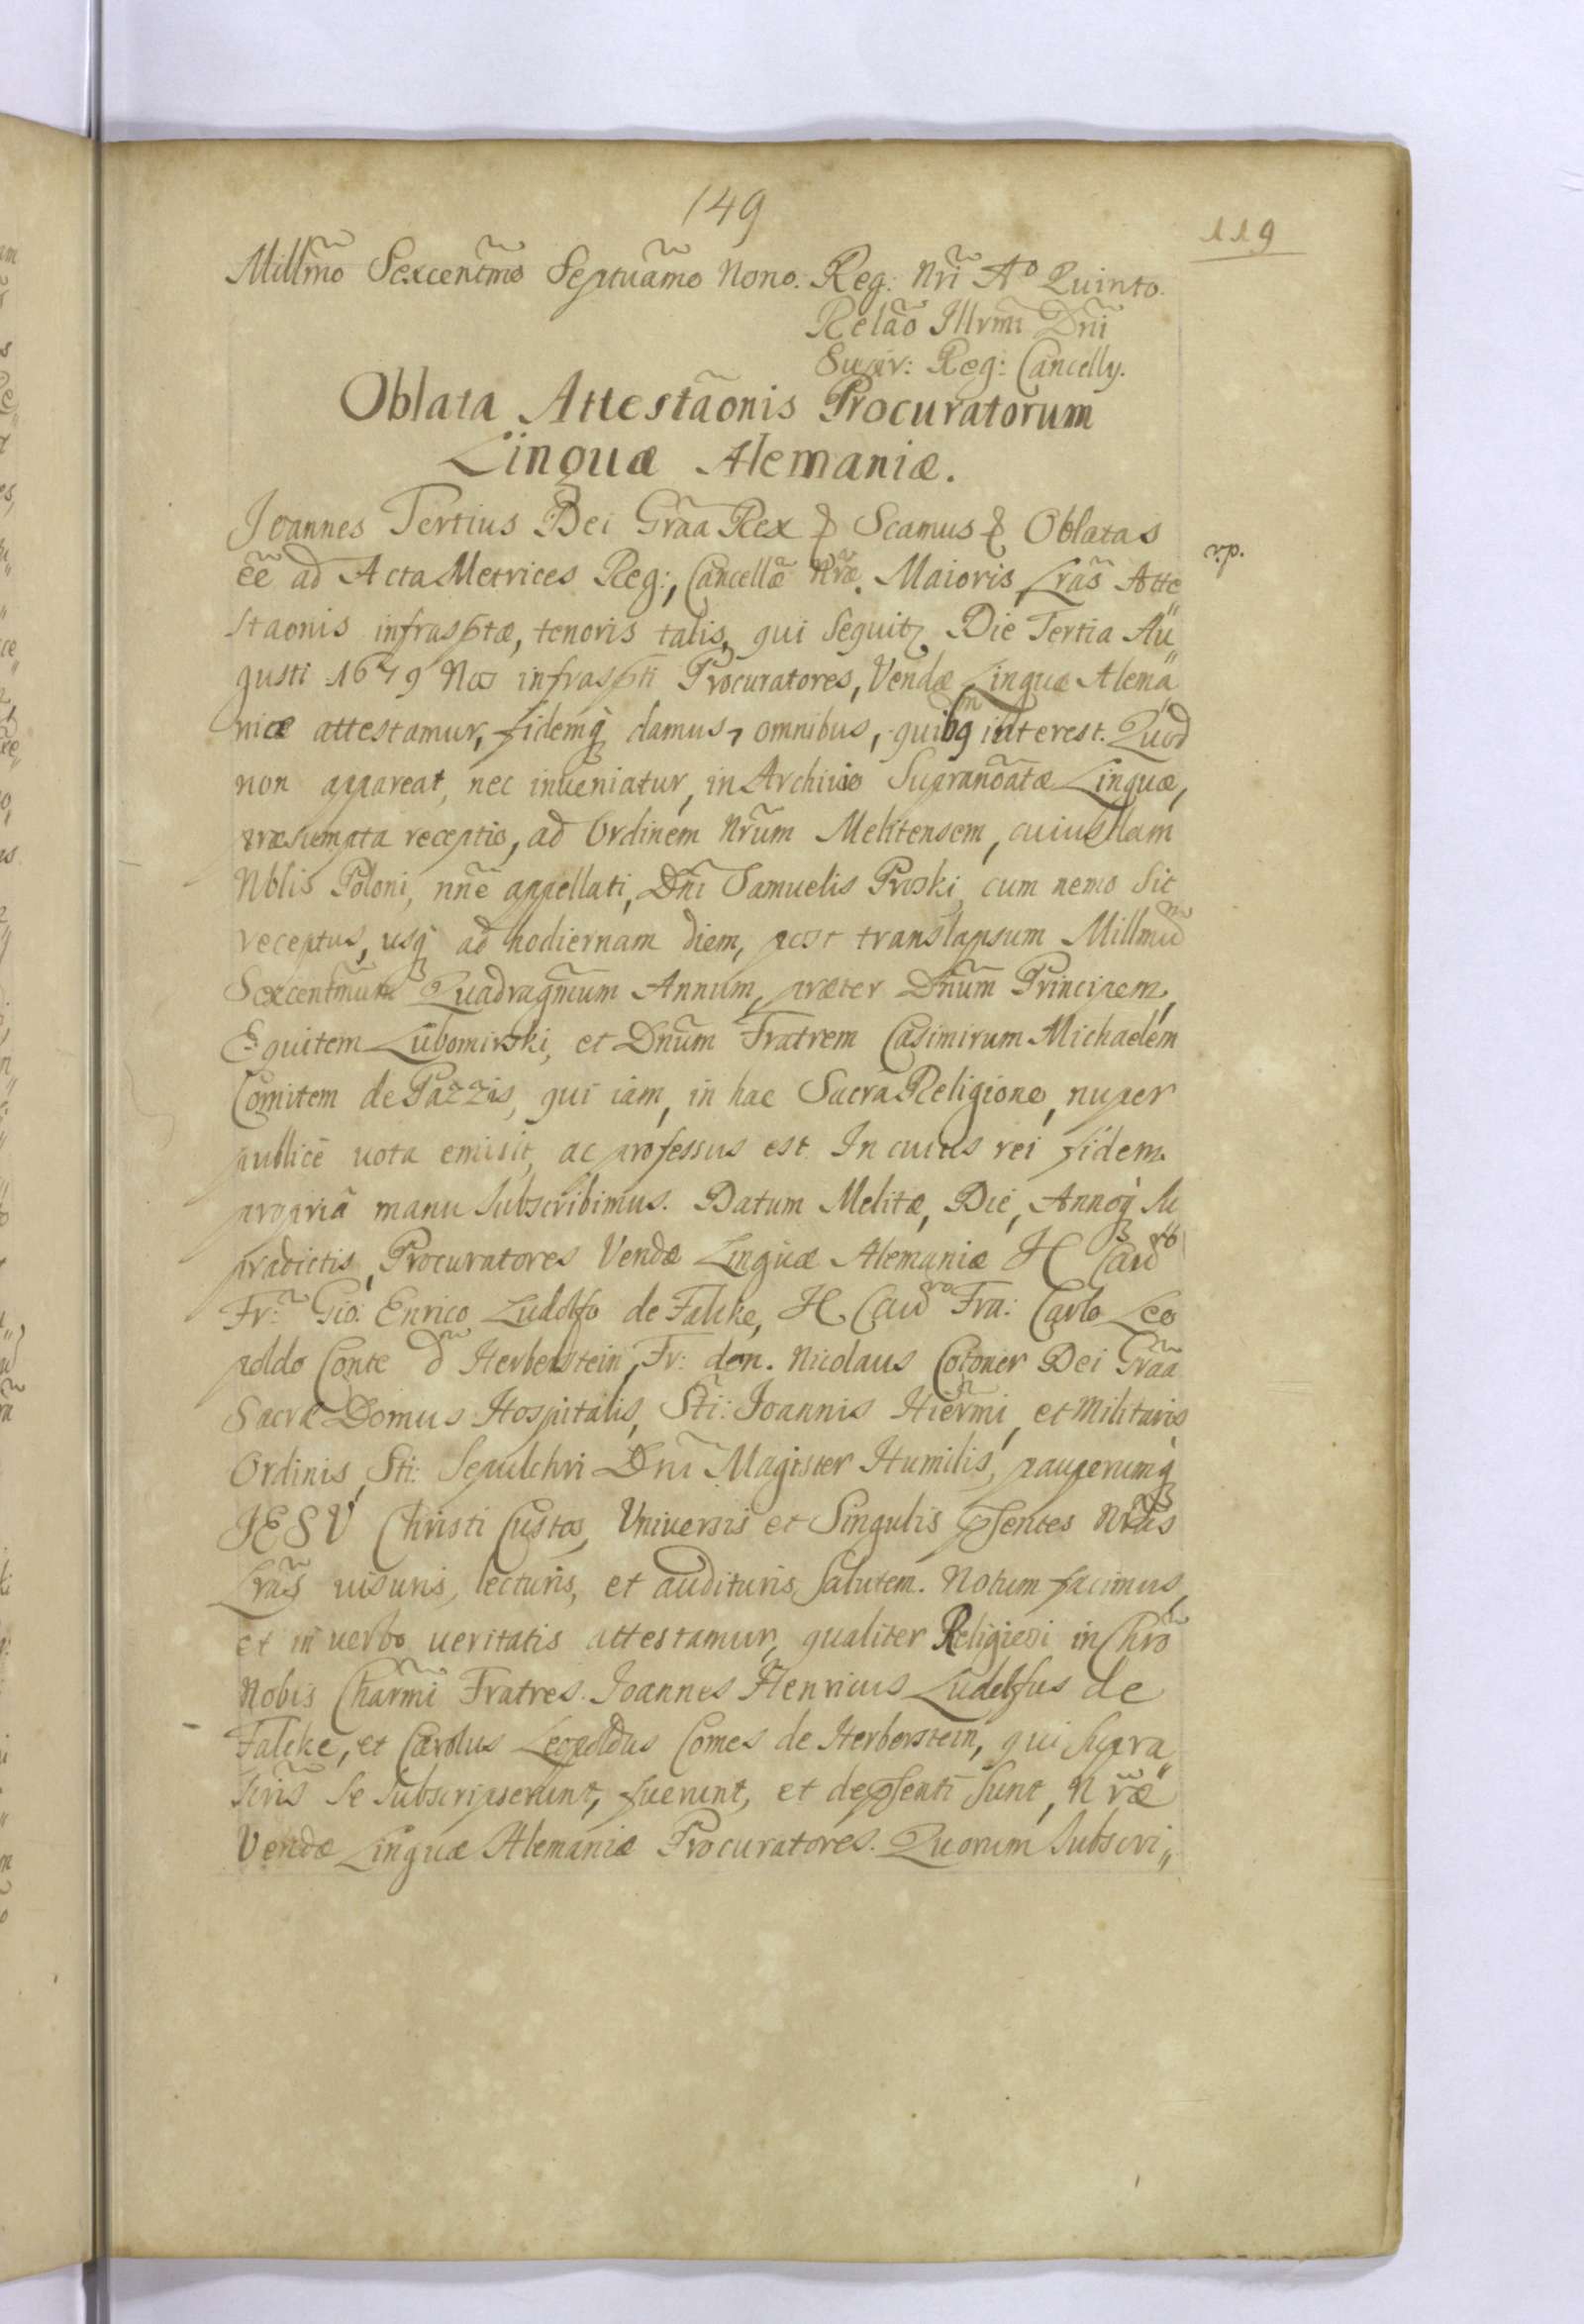 149
119
Millm̃o Sexcentm̃o Septuãmo Nono. Reg: Nrĩ Aº Quinto.
Relão Illrmi Dnĩ
Supr: Reg: Cancelly.
Oblata Attestãonis Procuratorum
Linguæ Alemaniæ.
Joannes Tertius Dei Grãa Rex & Scamus & Oblatas
r.p.
eẽ ad Acta Metrices Reg:, Cancellæ̃ Nræ̃. Maioris, Lrãs Atte
staonis infrasptæ, tenoris talis, qui sequitz Die Tertia Au„
gusti 1679 Nos infraspti Procuratores, Vendæ Linguæ Alema„
nicæ attestamur, fidemq̃ damus, omnibus, quibg interest. Quod
non appareat, nec inueniatur, in Archiuio Supranõatæ Linguæ,
præsumpta receptio, ad Ordinem Nr̃um Melitensem, cuiusdam
Nblis Poloni, nñe appellati, Dñi Samuelis Proski, cum nemo sit
receptus, usq̃ ad hodiernam diem, post translapsum Millmũ
Sexcentmũm Quadragm̃um Annum, præter Dñum Principem,
Equitem Lubomirski, et Dñum Fratrem Casimirum Michaelem
Comitem de Pazzis, qui iam, in hac Sacra Religione, nuper
publicè uota emisit, ac professus est. In cuius rei fidem
propriâ manu subscribimus. Datum Melitæ, Die, Annoq̃ su
pradictis, Procuratores Vendæ Linguæ Alemaniæ Il Cau^ro
Fr: Gio: Enrico Ludolfo de Falcke, Il Cau^ro Fra: Carlo Leo
poldo Conte d̃ Herberstein, Fr: don. Nicolaus Cotoner Dei Grãa
Sacræ Domus Hospitalis, Stĩ: Joannis Hierm̃i, et Militaris
Ordinis, Sti: Sepulchri Dnĩ Magister Humilis, pauperumq̃
JESV Christi Custos, Universis et Singulis psentes Nrãs
Lrãs uisuris, lecturis, et audituris, salutem. Notum facimus,
et in uerbo ueritatis attestamur, qualiter Religiosi in Chrõ
Nobis Charm̃i Fratres. Joannes Henricus Ludolfus de
Falcke, et Carolus Leopoldus Comes de Herberstein, qui supra„
scris̃ se subscripserunt, fuerunt, et depsenti sunt, Nræ̃
Vendæ Linguæ Alemaniæ Procuratores. Quorum subscri„